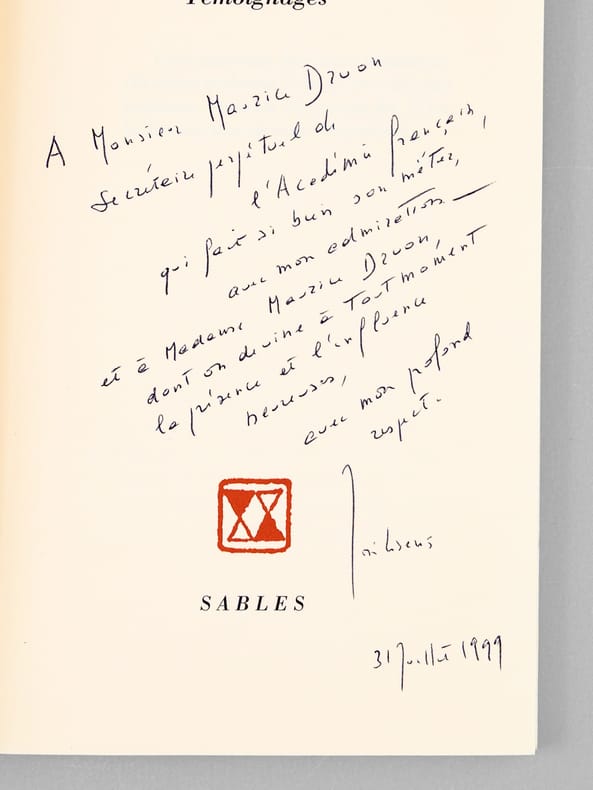 Témoignages
A Monsieur Maurice Druon
Secrétaire perpétuel de
l'Académie française,
qui fait si bien son métier,
avec mon admiration —
et à Madame Maurice Druon,
dont on devine à tout moment
la présence et l'influence
heureuses,
avec mon profond
respect.
SABLES
31 Juillet 1999